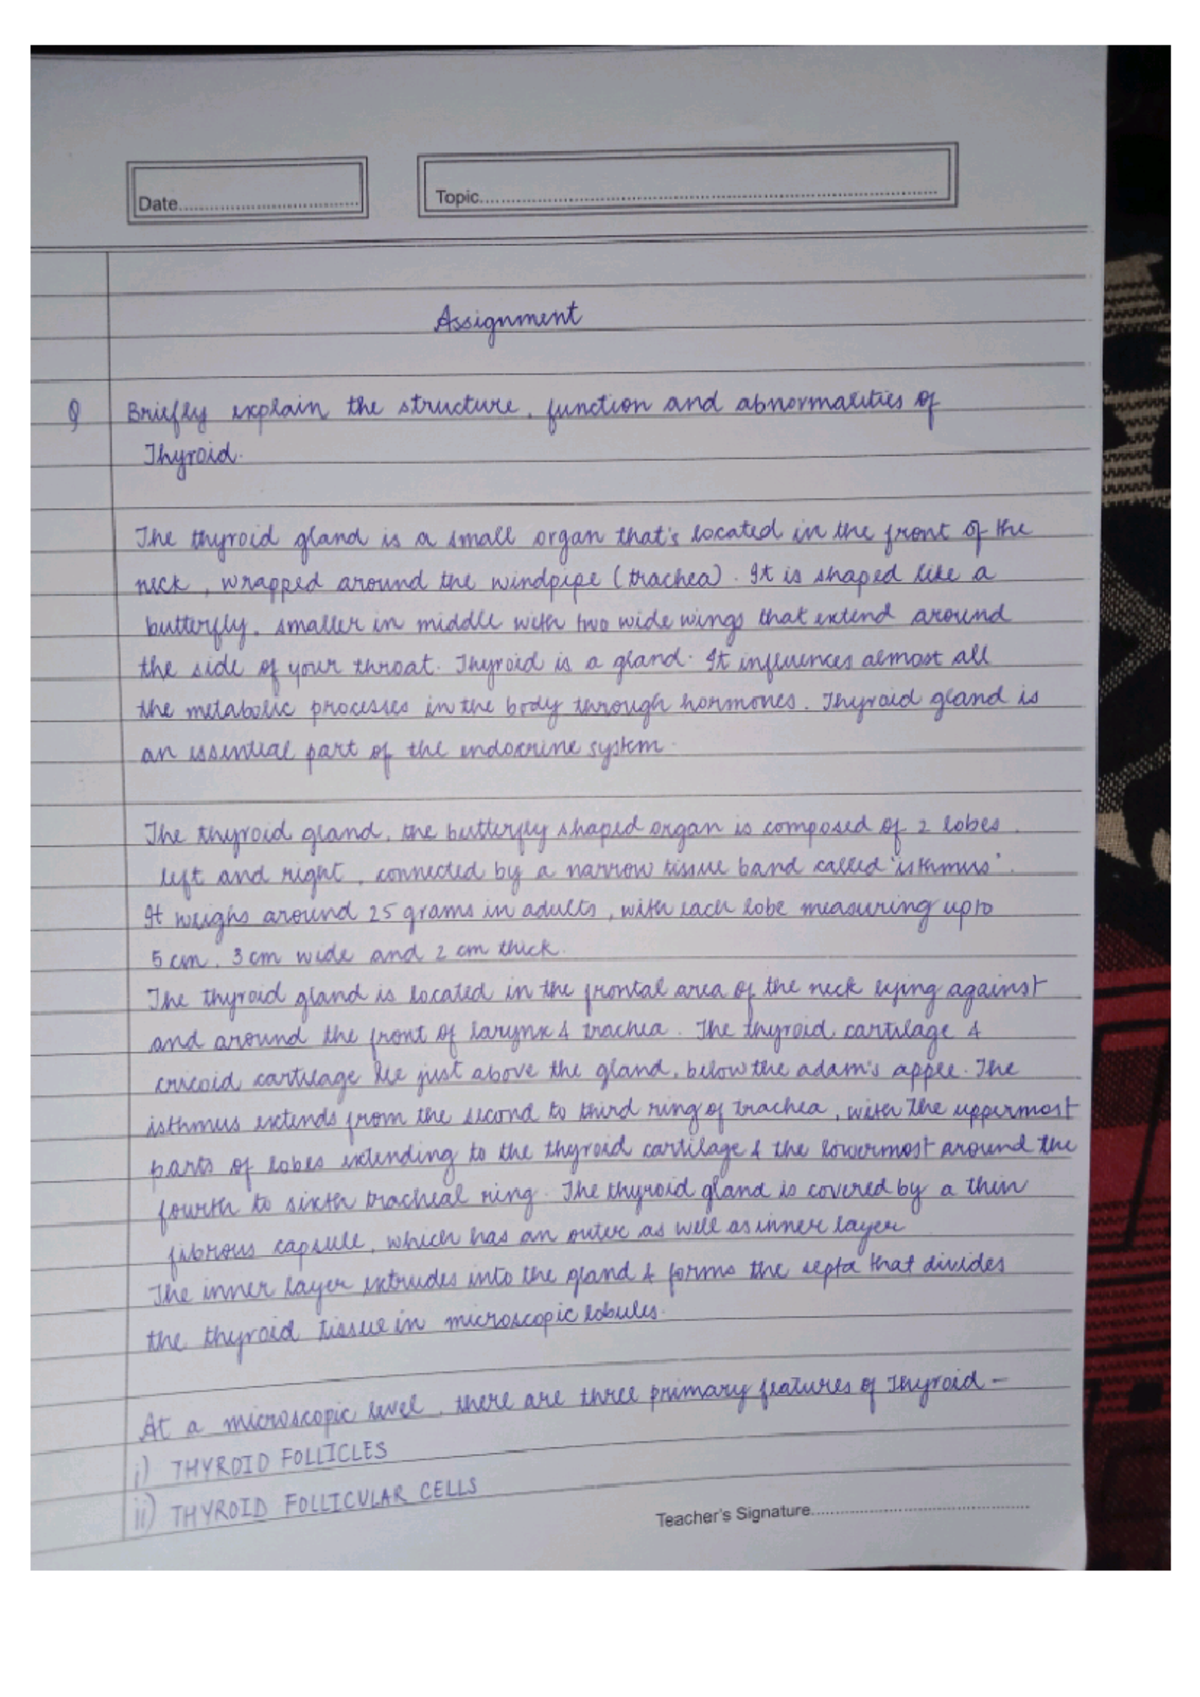 Date
Topic
Assignment
Q Briefly explain the structure, function and abnormalities of
Thyroid.
The thyroid gland is a small organ that's located in the front of the
neck, wrapped around the windpipe (trachea). It is shaped like a
butterfly, smaller in middle with two wide wings that extend around
the side of your throat. Thyroid is a gland. It influences almost all
the metabolic processes in the body through hormones. Thyroid gland is
an essential part of the endocrine system.
The thyroid gland, the butterfly shaped organ is composed of 2 lobes,
left and right, connected by a narrow tissue band called "isthmus".
It weighs around 25 grams in adults, with each lobe measuring upto
5 cm, 3 cm wide and 2 cm thick.
The thyroid gland is located in the frontal area of the neck lying against
and around the front of larynx & trachea. The thyroid cartilage &
cricoid cartilage lie just above the gland, below the adam's apple. The
isthmus extends from the second to third ring of trachea, with the uppermost
parts of lobes extending to the thyroid cartilage & the lowermost around the
fourth to sixth tracheal ring. The thyroid gland is covered by a thin
fibrous capsule, which has an outer as well as inner layer
The inner layer extrudes into the gland & forms the septa that divides
the thyroid tissue in microscopic lobules.
At a microscopic level, there are three primary features of Thyroid -
i) THYROID FOLLICLES
ii) THYROID FOLLICULAR CELLS
Teacher's Signature